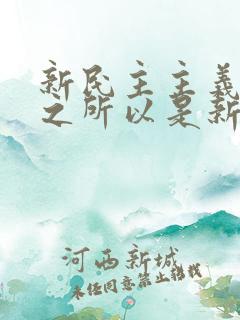 新民主主義
之所以是新
河西新城
未经同意禁止转载